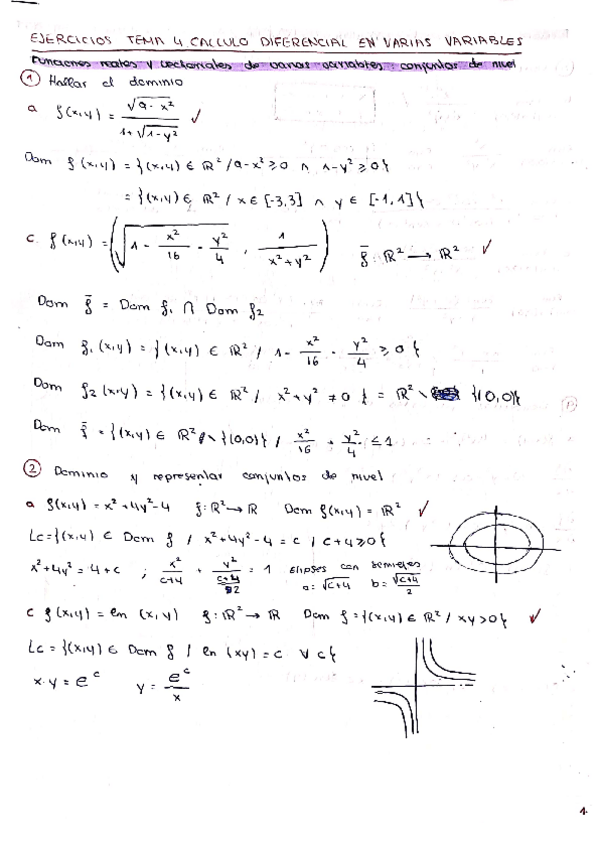 EJERCICIOS TEMA 4. CALCULO DIFERENCIAL EN VARIAS VARIABLES
Funciones reales y vectoriales de varias variables: conjuntos de nivel
① Hallar el dominio
a f(x,y) = √(9-x²) / (1+√(1-y²)) ✓
Dom f(x,y) = {(x,y) ∈ ℝ² / 9-x² ≥ 0 ∧ 1-y² ≥ 0}
= {(x,y) ∈ ℝ² / x ∈ [-3,3] ∧ y ∈ [-1,1]}
c. f(x,y) = (√(1 - x²/16 - y²/4) , 1/(x²+y²)) f̄: ℝ² → ℝ² ✓
Dom f̄ = Dom f₁ ∩ Dom f₂
Dom f₁(x,y) = {(x,y) ∈ ℝ² / 1 - x²/16 - y²/4 ≥ 0}
Dom f₂(x,y) = {(x,y) ∈ ℝ² / x²+y² ≠ 0} = ℝ² \ {(0,0)}
Dom f̄ = {(x,y) ∈ ℝ² \ {(0,0)} / x²/16 + y²/4 ≤ 1
② Dominio y representar conjuntos de nivel
a f(x,y) = x²+4y²-4 f: ℝ² → ℝ Dom f(x,y) = ℝ² ✓
Lc = {(x,y) ∈ Dom f / x²+4y²-4 = c / c+4 ≥ 0}
x²+4y² = 4+c ; x²/(c+4) + y²/((c+4)/2²) = 1 Elipses con semiejes a = √(c+4) b = √(c+4)/2
c f(x,y) = ln (x,y) f: ℝ² → ℝ Dom f = {(x,y) ∈ ℝ² / xy > 0} ✓
Lc = {(x,y) ∈ Dom f / ln (xy) = c ∀ c}
x·y = e^c y = e^c/x
1.